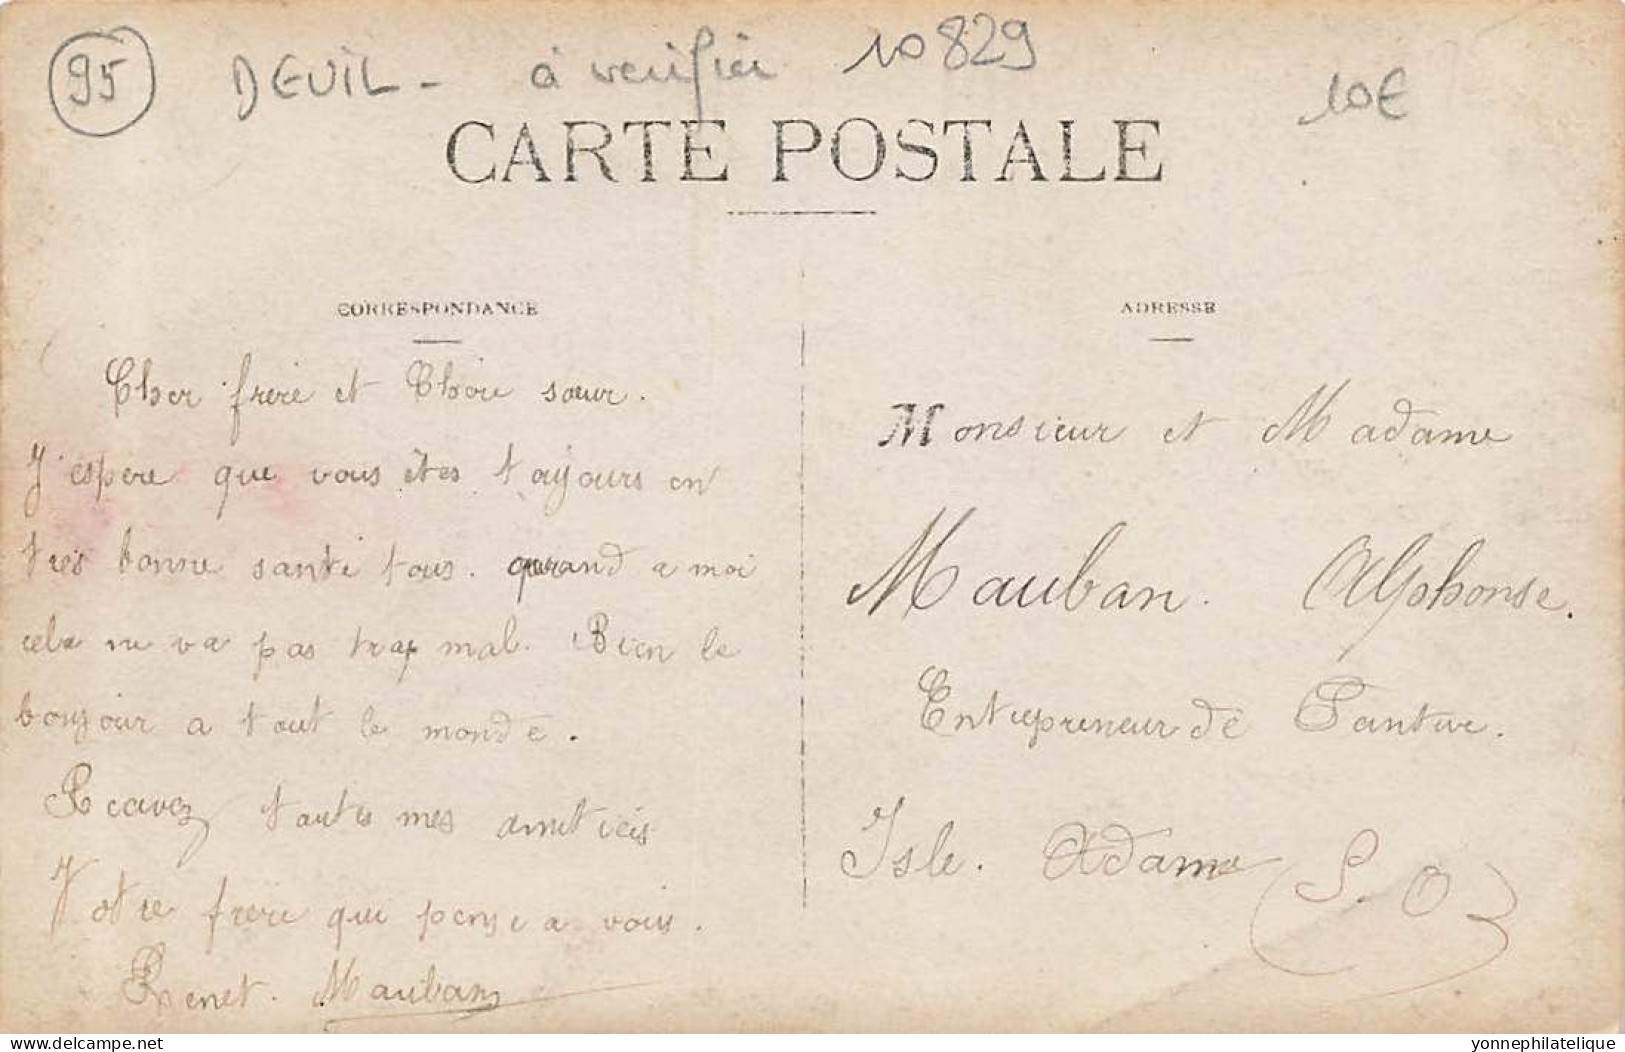 95 DEUIL - à verifier 10829
10€
CARTE POSTALE
CORRESPONDANCE
Cher frere et Chère sœur.
J'espere que vous êtes toujours en
très bonne santé tous. quand a moi
cela ne va pas trop mal. Bien le
bonjour a tout le monde.
Recevez toutes mes amitiés
Votre frère qui pense a vous.
Renet. Mauban
ADRESSE
Monsieur et Madame
Mauban. Alphonse.
Entrepreneur de Pantur.
Isle. Adame (S. O)
delcampe.net
yonnephilatelique